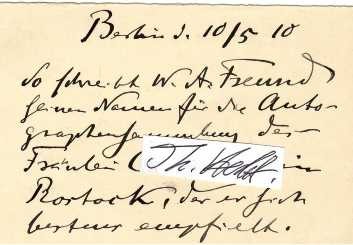 Berlin d. 10/5 10
So schreibt W. A. Freund
seinen Namen für die Auto-
graphensammlung des
Fräulein in
Rostock, der er sich
bestens empfielt.